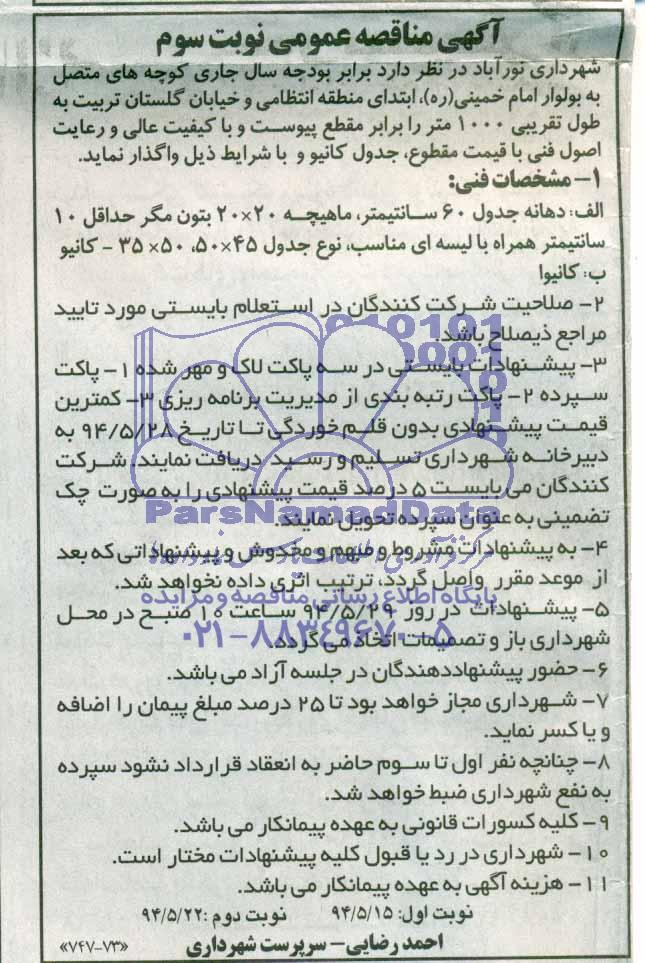 آگهی مناقصه عمومی نوبت سوم
شهرداری نورآباد در نظر دارد برابر بودجه سال جاری کوچه های متصل
به بولوار امام خمینی(ره)، ابتدای منطقه انتظامی و خیابان گلستان تربیت به
طول تقریبی ۱۰۰۰ متر را برابر مقطع پیوست و با کیفیت عالی و رعایت
اصول فنی با قیمت مقطوع، جدول کانیو و با شرایط ذیل واگذار نماید.
۱- مشخصات فنی:
الف: دهانه جدول ۶۰ سانتیمتر، ماهیچه ۲۰×۲۰ بتون مگر حداقل ۱۰
سانتیمتر همراه با لیسه ای مناسب، نوع جدول ۴۵×۵۰، ۵۰×۳۵ - کانیو
ب: کانیوا
۲- صلاحیت شرکت کنندگان در استعلام بایستی مورد تایید
مراجع ذیصلاح باشد.
۳- پیشنهادات بایستی در سه پاکت لاک و مهر شده ۱- پاکت
سپرده ۲- پاکت رتبه بندی از مدیریت برنامه ریزی ۳- کمترین
قیمت پیشنهادی بدون قلم خوردگی تا تاریخ ۹۴/۵/۲۸ به
دبیرخانه شهرداری تسلیم و رسید دریافت نمایند. شرکت
کنندگان می بایست ۵ درصد قیمت پیشنهادی را به صورت چک
تضمینی به عنوان سپرده تحویل نمایند.
۴- به پیشنهادات مشروط و مبهم و مخدوش و پیشنهاداتی که بعد
از موعد مقرر واصل گردد، ترتیب اثری داده نخواهد شد.
۵- پیشنهادات در روز ۹۴/۵/۲۹ ساعت ۱۰ صبح در محل
شهرداری باز و تصمیمات اتخاذ می گردد.
۶- حضور پیشنهاددهندگان در جلسه آزاد می باشد.
۷- شهرداری مجاز خواهد بود تا ۲۵ درصد مبلغ پیمان را اضافه
و یا کسر نماید.
۸- چنانچه نفر اول تا سوم حاضر به انعقاد قرارداد نشود سپرده
به نفع شهرداری ضبط خواهد شد.
۹- کلیه کسورات قانونی به عهده پیمانکار می باشد.
۱۰- شهرداری در رد یا قبول کلیه پیشنهادات مختار است.
۱۱- هزینه آگهی به عهده پیمانکار می باشد.
نوبت اول: ۹۴/۵/۱۵ نوبت دوم :۹۴/۵/۲۲
احمد رضایی- سرپرست شهرداری
«۷۴۷-۷۳»
ParsNamadData
پایگاه اطلاع رسانی مناقصه و مزایده
۰۲۱-۸۸۳۴۹۶۷۰-۵